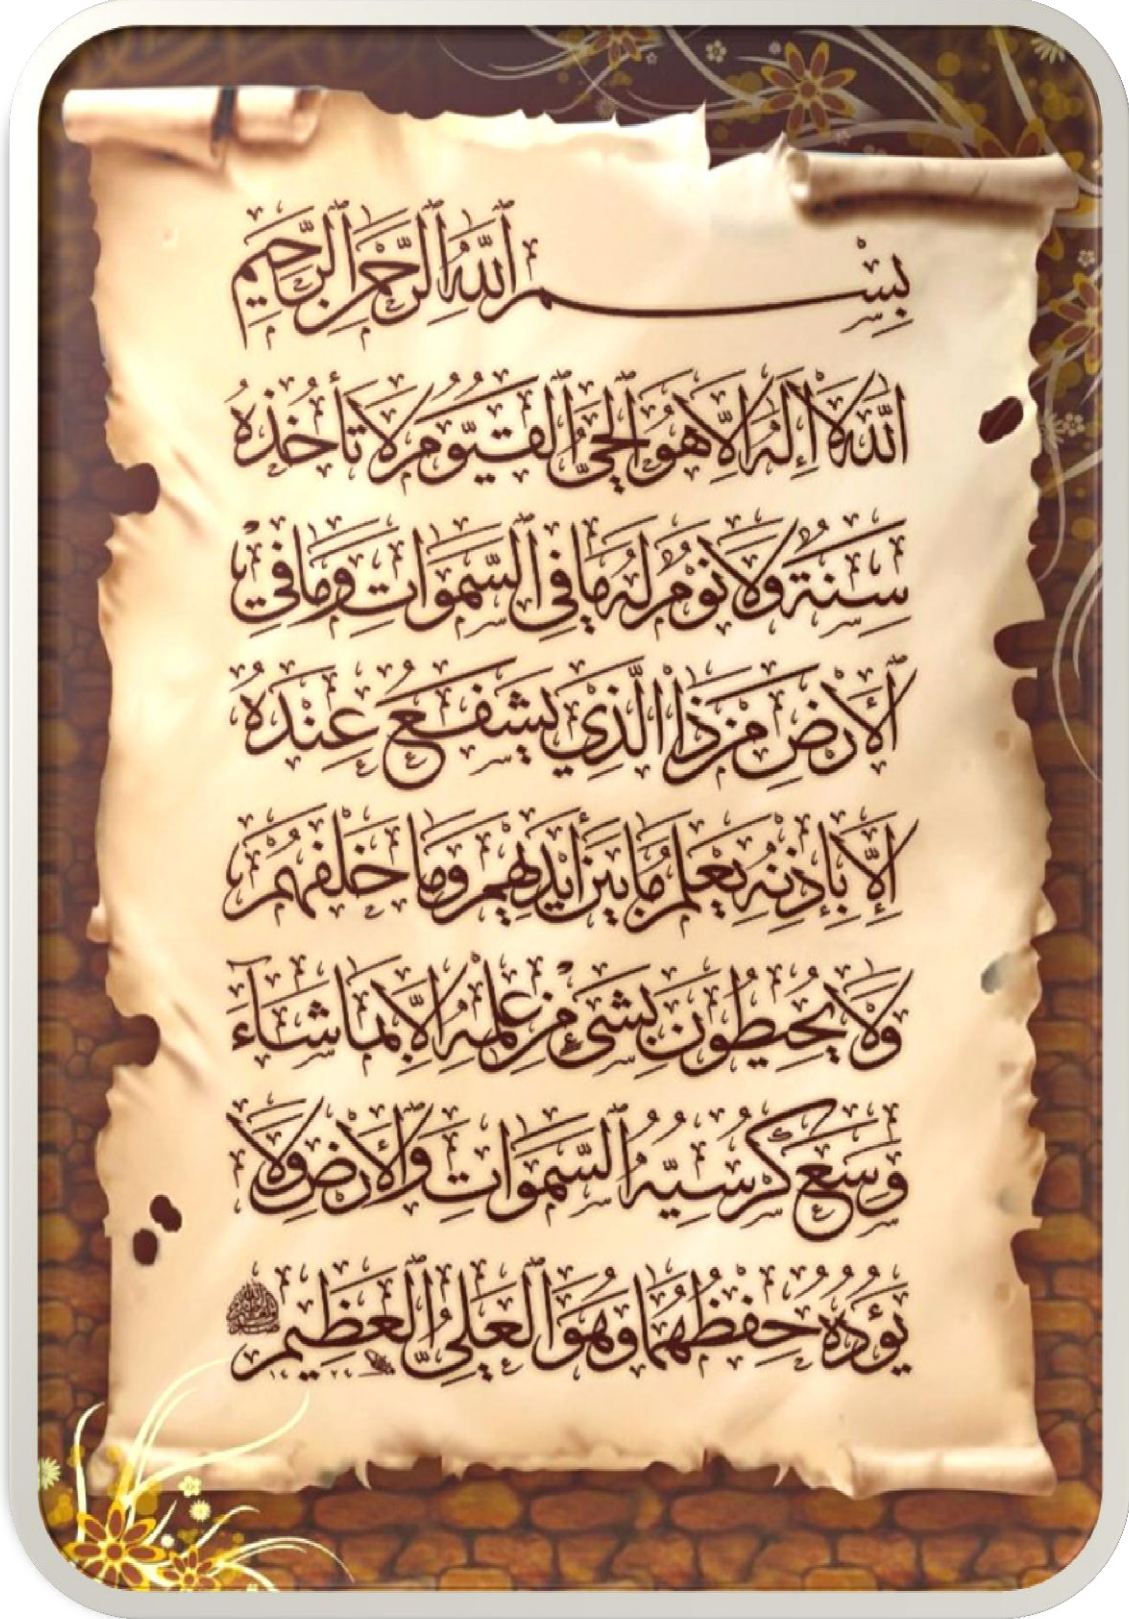 بِسْمِ ٱللَّهِ ٱلرَّحْمَٰنِ ٱلرَّحِيمِ
اللَّهُ لَا إِلَٰهَ إِلَّا هُوَ الْحَيُّ الْقَيُّومُ لَا تَأْخُذُهُ
سِنَةٌ وَلَا نَوْمٌ لَهُ مَا فِي السَّمَوَاتِ وَمَا فِي
الْأَرْضِ مَنْ ذَا الَّذِي يَشْفَعُ عِنْدَهُ
إِلَّا بِإِذْنِهِ يَعْلَمُ مَا بَيْنَ أَيْدِيهِمْ وَمَا خَلْفَهُمْ
وَلَا يُحِيطُونَ بِشَيْءٍ مِنْ عِلْمِهِ إِلَّا بِمَا شَاءَ
وَسِعَ كُرْسِيُّهُ السَّمَوَاتِ وَالْأَرْضَ وَلَا
يَؤُدُهُ حِفْظُهُمَا وَهُوَ الْعَلِيُّ الْعَظِيمُ